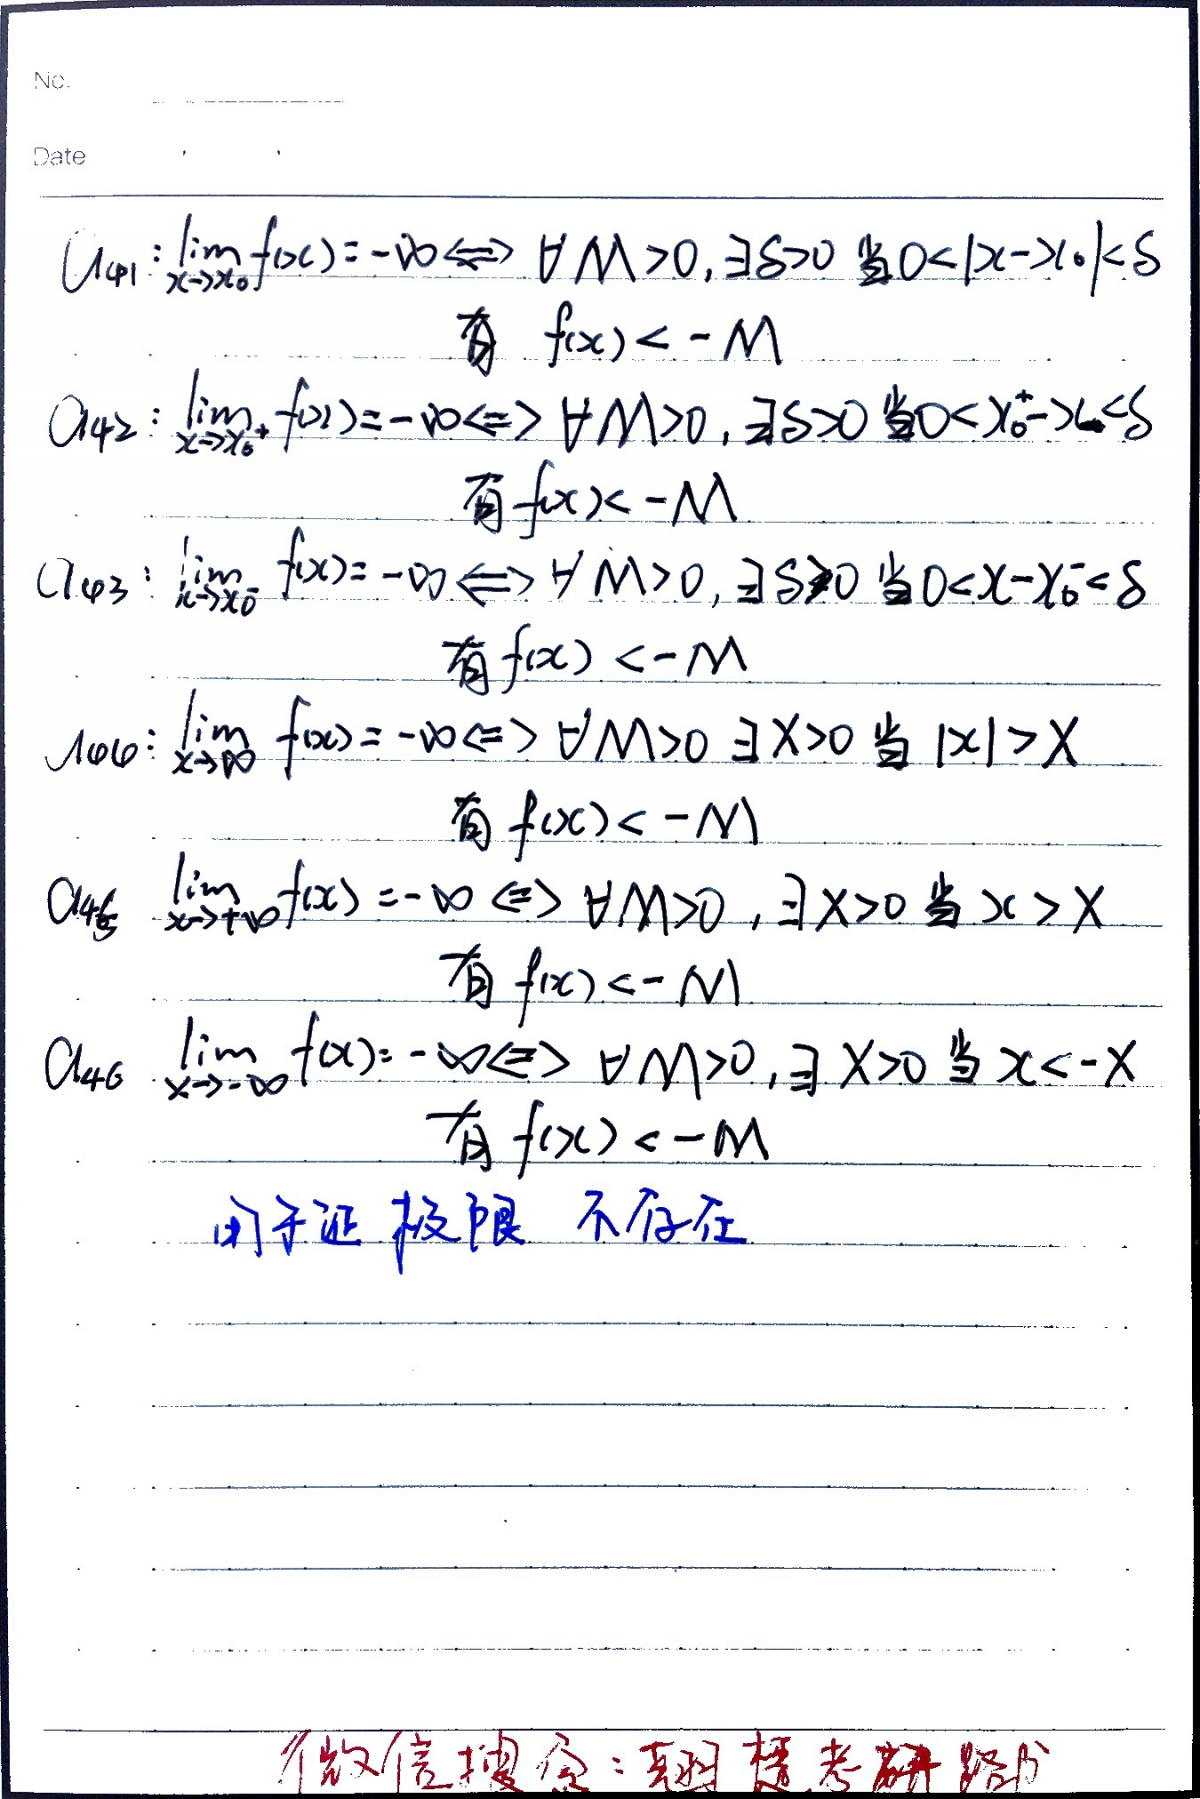 No.
Date
a₄₁: lim x→x₀ f(x)=-∞ ⇔ ∀M>0, ∃δ>0 当0<|x-x₀|<δ
有 f(x)<-M
a₄₂: lim x→x₀⁺ f(x)=-∞ ⇔ ∀M>0, ∃δ>0 当0<x₀⁺-x<δ
有f(x)<-M
a₄₃: lim x→x₀⁻ f(x)=-∞ ⇔ ∀M>0, ∃δ>0 当0<x-x₀⁻<δ
有f(x)<-M
a₄₄: lim x→∞ f(x)=-∞ ⇔ ∀M>0 ∃X>0 当 |x|>X
有 f(x)<-M
a₄₅ lim x→+∞ f(x)=-∞ ⇔ ∀M>0, ∃X>0 当 x>X
有 f(x)<-M
a₄₆ lim x→-∞ f(x)=-∞ ⇔ ∀M>0, ∃X>0 当 x<-X
有 f(x)<-M
用于证 极限 不存在
微信搜索:翔 考研